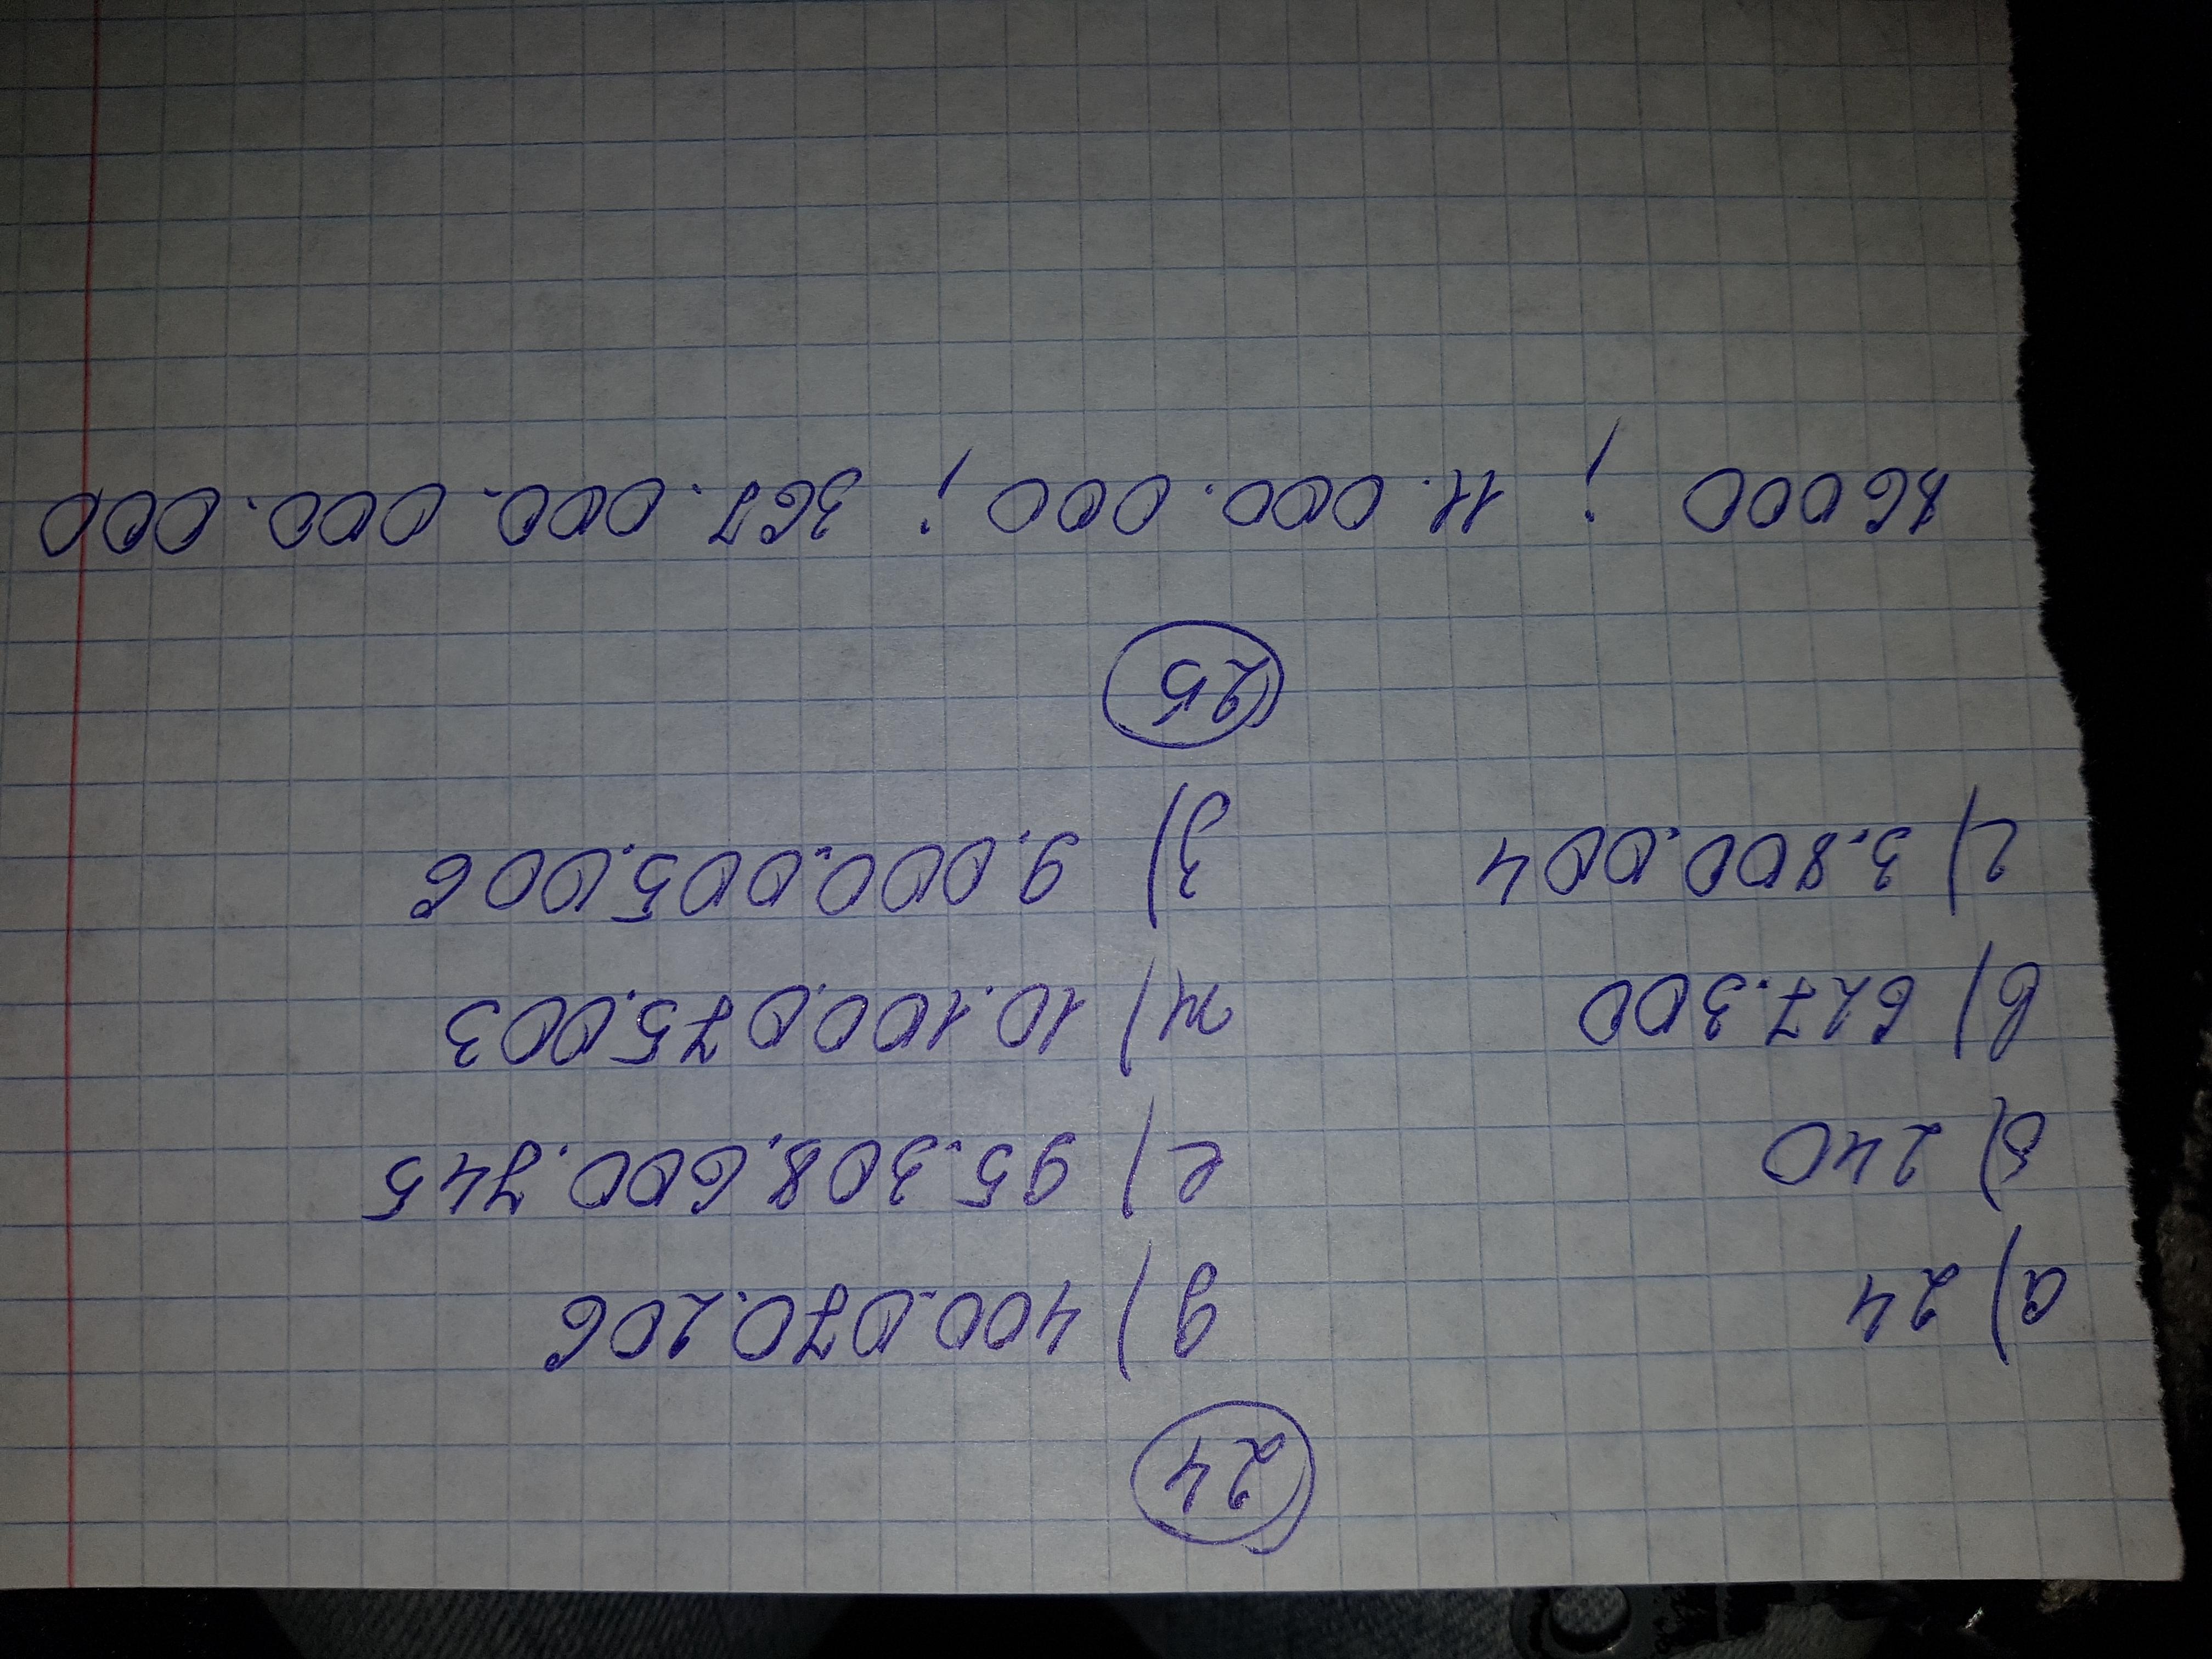 24
а) 24 д) 400.070.206
б) 240 е) 95.308.600.745
в) 627.300 ж) 10.100.075.003
г) 3.800.004 з) 9.000.005.006
25
86000 ; 11.000.000 ; 367.000.000.000